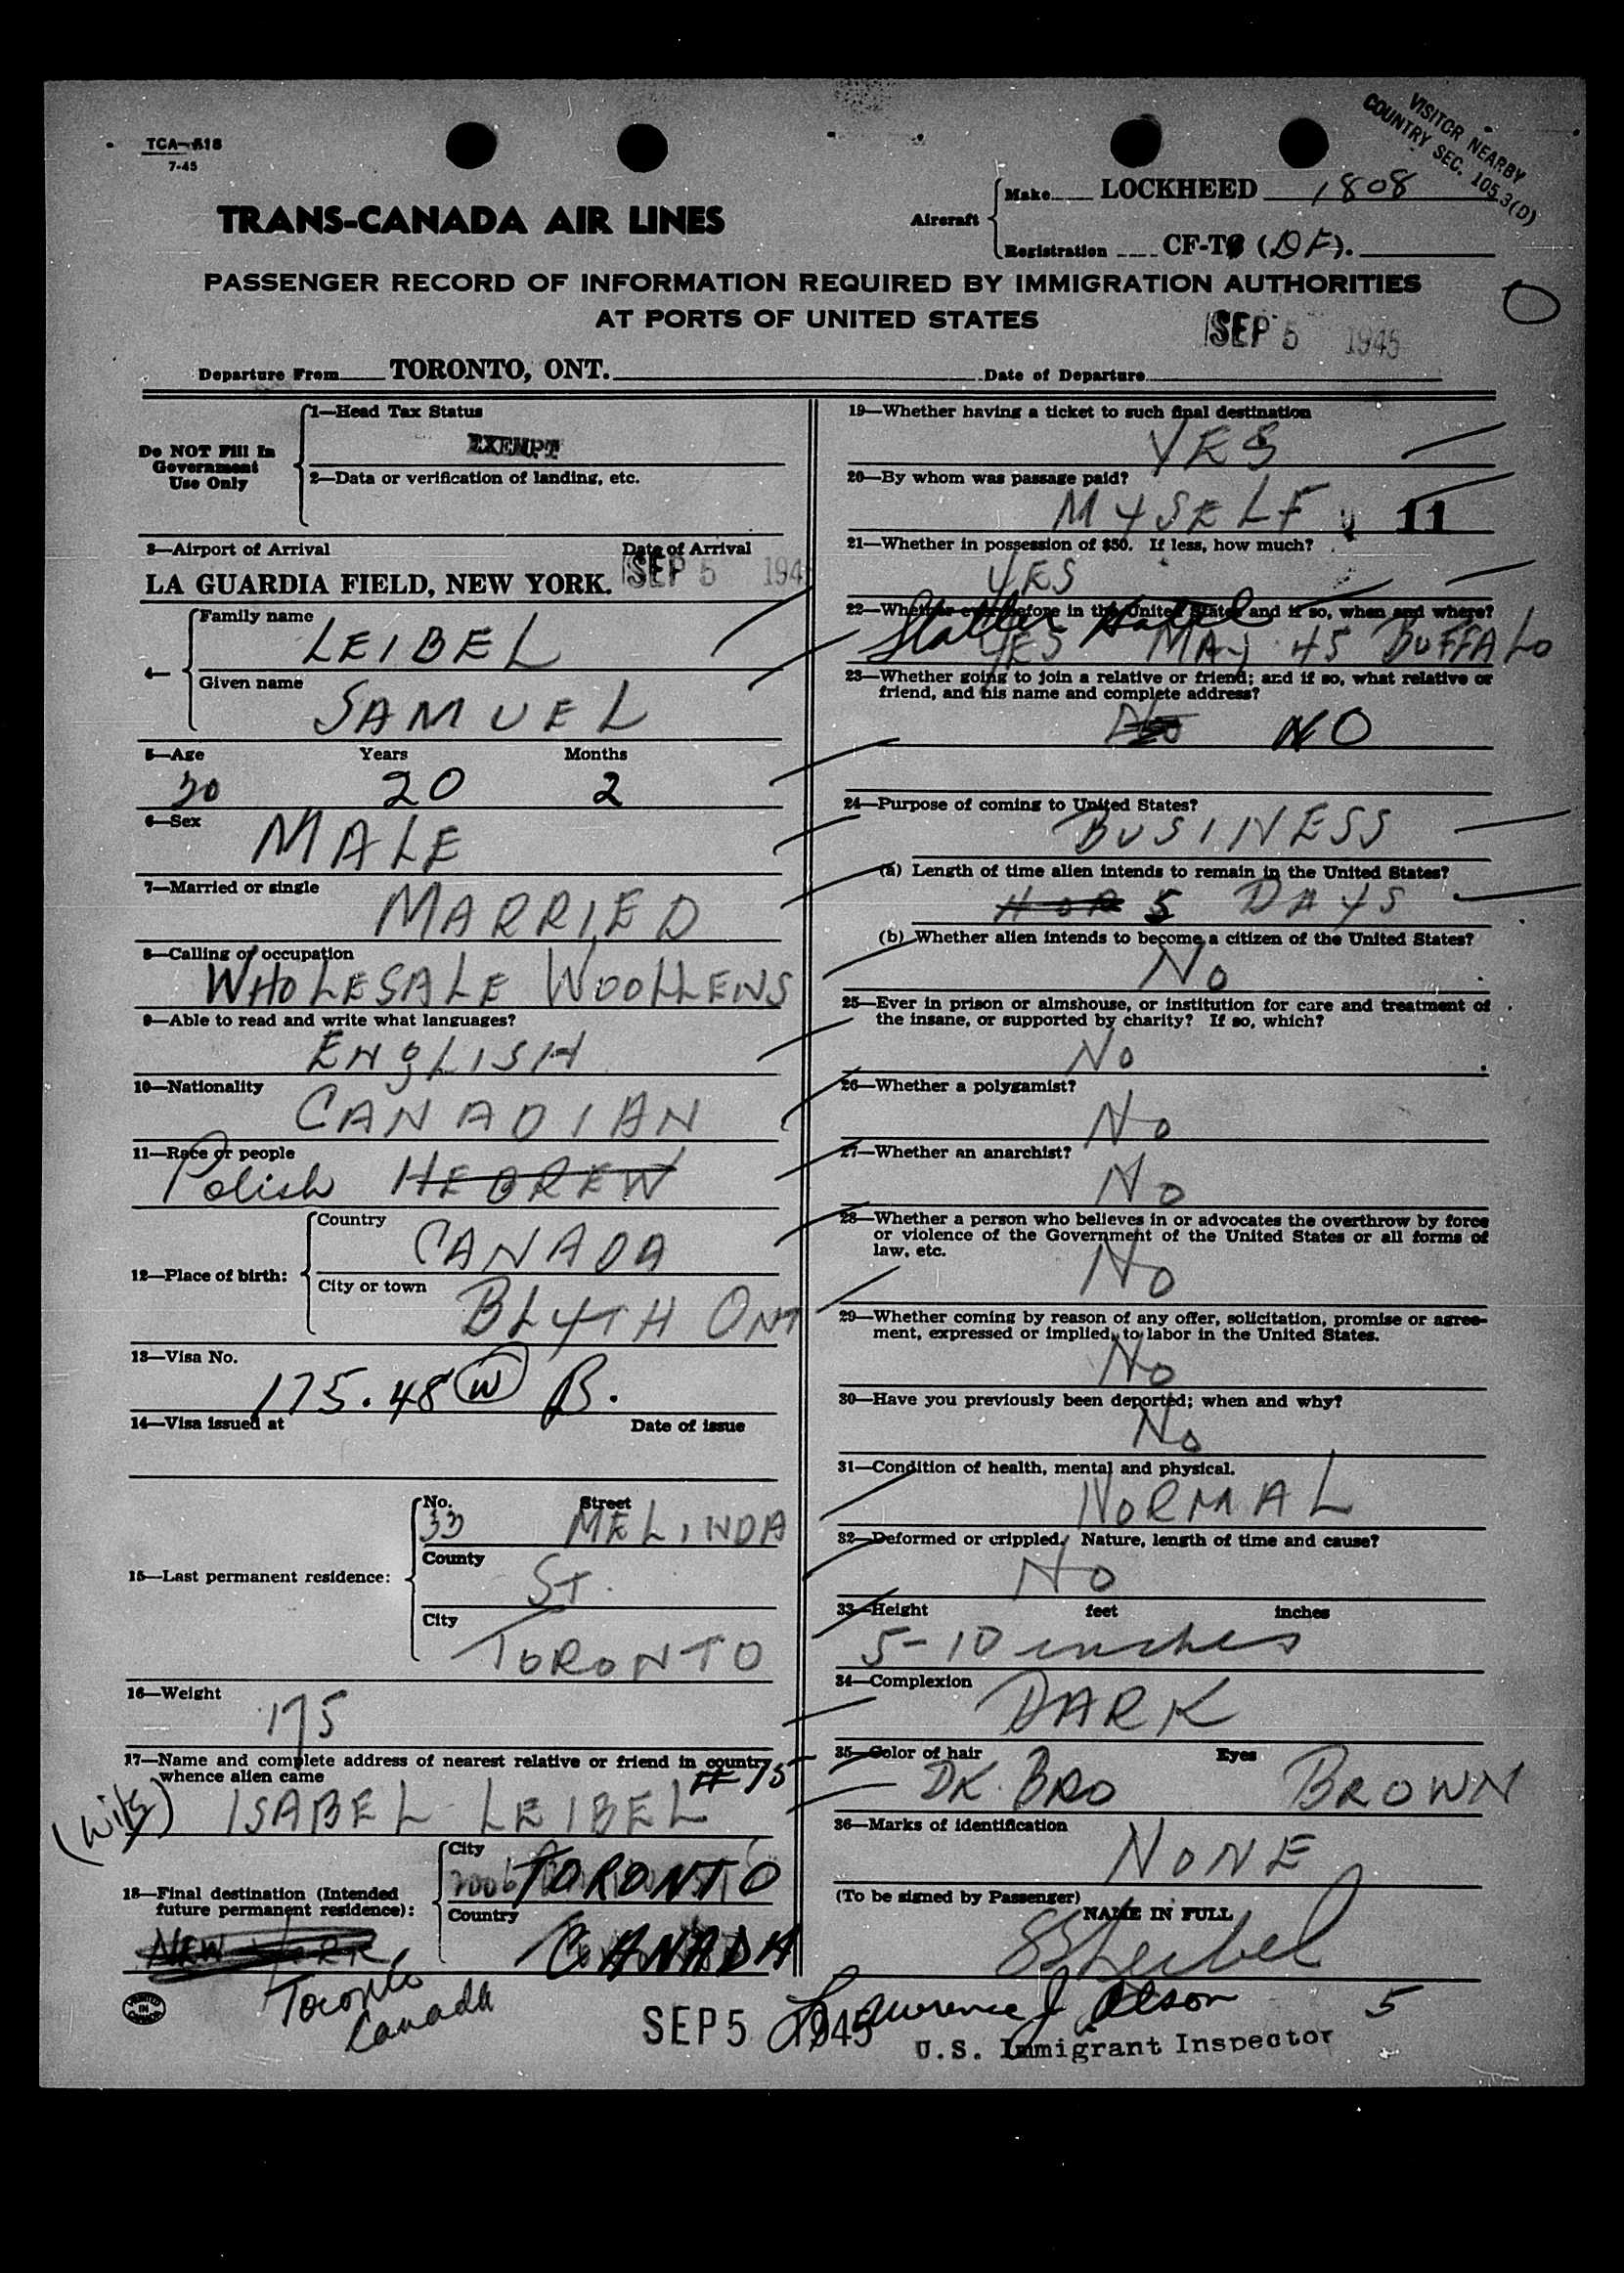 TCA-518
7-45
VISITOR NEARBY
COUNTRY SEC. 105.3(D)
TRANS-CANADA AIR LINES
Aircraft
Make LOCKHEED 1808
Registration CF-T (DF).
PASSENGER RECORD OF INFORMATION REQUIRED BY IMMIGRATION AUTHORITIES
AT PORTS OF UNITED STATES
SEP 5 1945
Departure From TORONTO, ONT. Date of Departure
Do NOT Fill In
Government
Use Only
1—Head Tax Status
EXEMPT
2—Data or verification of landing, etc.
3—Airport of Arrival Date of Arrival
LA GUARDIA FIELD, NEW YORK. SEP 5 194
4—
Family name
LEIBEL
Given name
SAMUEL
5—Age Years Months
20 2
6—Sex
MALE
7—Married or single
MARRIED
8—Calling or occupation
WHOLESALE WOOLLENS
9—Able to read and write what languages?
ENGLISH
10—Nationality
CANADIAN
11—Race or people
Polish HEBREW
12—Place of birth:
Country
CANADA
City or town
BLYTH ONT
13—Visa No.
175.48 W B.
14—Visa issued at Date of issue
15—Last permanent residence:
No. Street
33 MELINDA
County
ST.
City
TORONTO
16—Weight
175
17—Name and complete address of nearest relative or friend in country
whence alien came
(Wife) ISABEL LEIBEL
18—Final destination (Intended
future permanent residence):
City
TORONTO
Country
CANADA
NEW YORK
Toronto
Canada
19—Whether having a ticket to such final destination
YES
20—By whom was passage paid?
MYSELF 11
21—Whether in possession of $50. If less, how much?
YES
22—Whether ever before in the United States and if so, when and where?
Statler Hotel
YES MAY 45 BUFFALO
23—Whether going to join a relative or friend; and if so, what relative or
friend, and his name and complete address?
No NO
24—Purpose of coming to United States?
BUSINESS
(a) Length of time alien intends to remain in the United States?
5 DAYS
(b) Whether alien intends to become a citizen of the United States?
No
25—Ever in prison or almshouse, or institution for care and treatment of
the insane, or supported by charity? If so, which?
No
26—Whether a polygamist?
No
27—Whether an anarchist?
No
28—Whether a person who believes in or advocates the overthrow by force
or violence of the Government of the United States or all forms of
law, etc.
No
29—Whether coming by reason of any offer, solicitation, promise or agree-
ment, expressed or implied, to labor in the United States.
No
30—Have you previously been deported; when and why?
No
31—Condition of health, mental and physical.
NORMAL
32—Deformed or crippled. Nature, length of time and cause?
No
33—Height feet inches
5-10 inches
34—Complexion
DARK
35—Color of hair Eyes
DK. BRO BROWN
36—Marks of identification
NONE
(To be signed by Passenger)
NAME IN FULL
S Leibel
SEP 5 1945 Lawrence J Olson 5
U.S. Immigrant Inspector
PRINTED
IN
CANADA